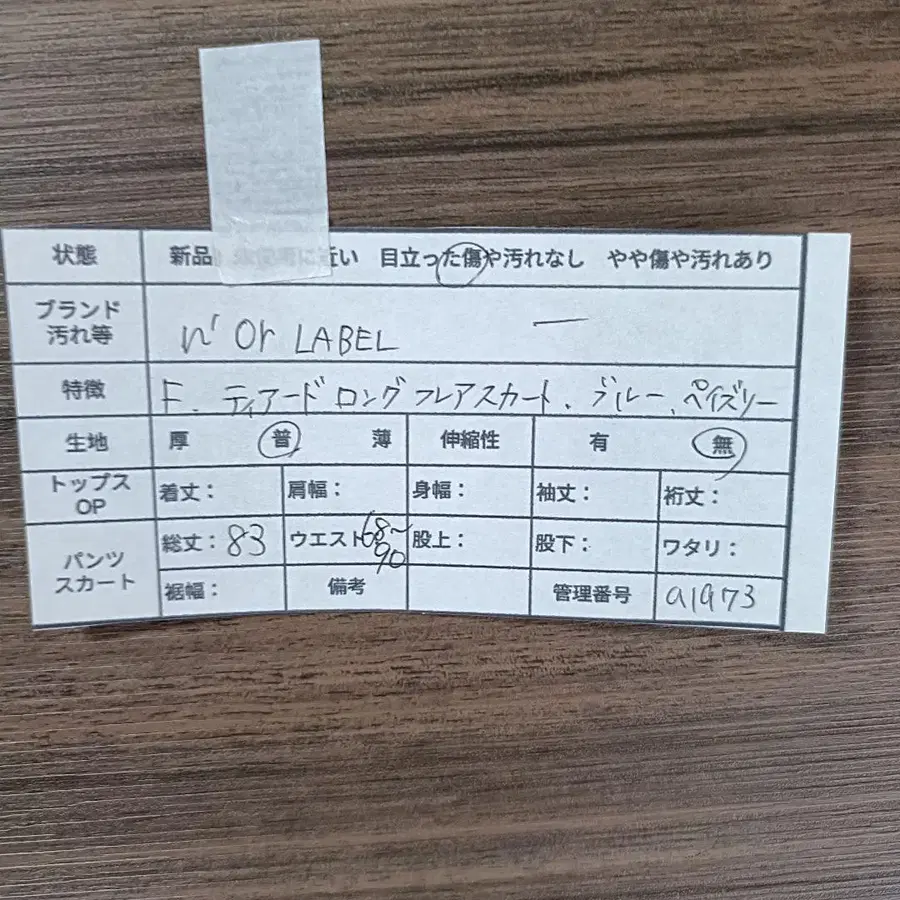 状態 新品 に近い 目立った傷や汚れなし やや傷や汚れあり
ブランド
汚れ等 n' Or LABEL ー
特徴 F、ティアードロングフレアスカート、ブルー、ペイズリー
生地 厚 普 薄 伸縮性 有 無
トップス
OP 着丈： 肩幅： 身幅： 袖丈： 裄丈：
パンツ
スカート 総丈：83 ウエスト68～90 股上： 股下： ワタリ：
裾幅： 備考 管理番号 a1973